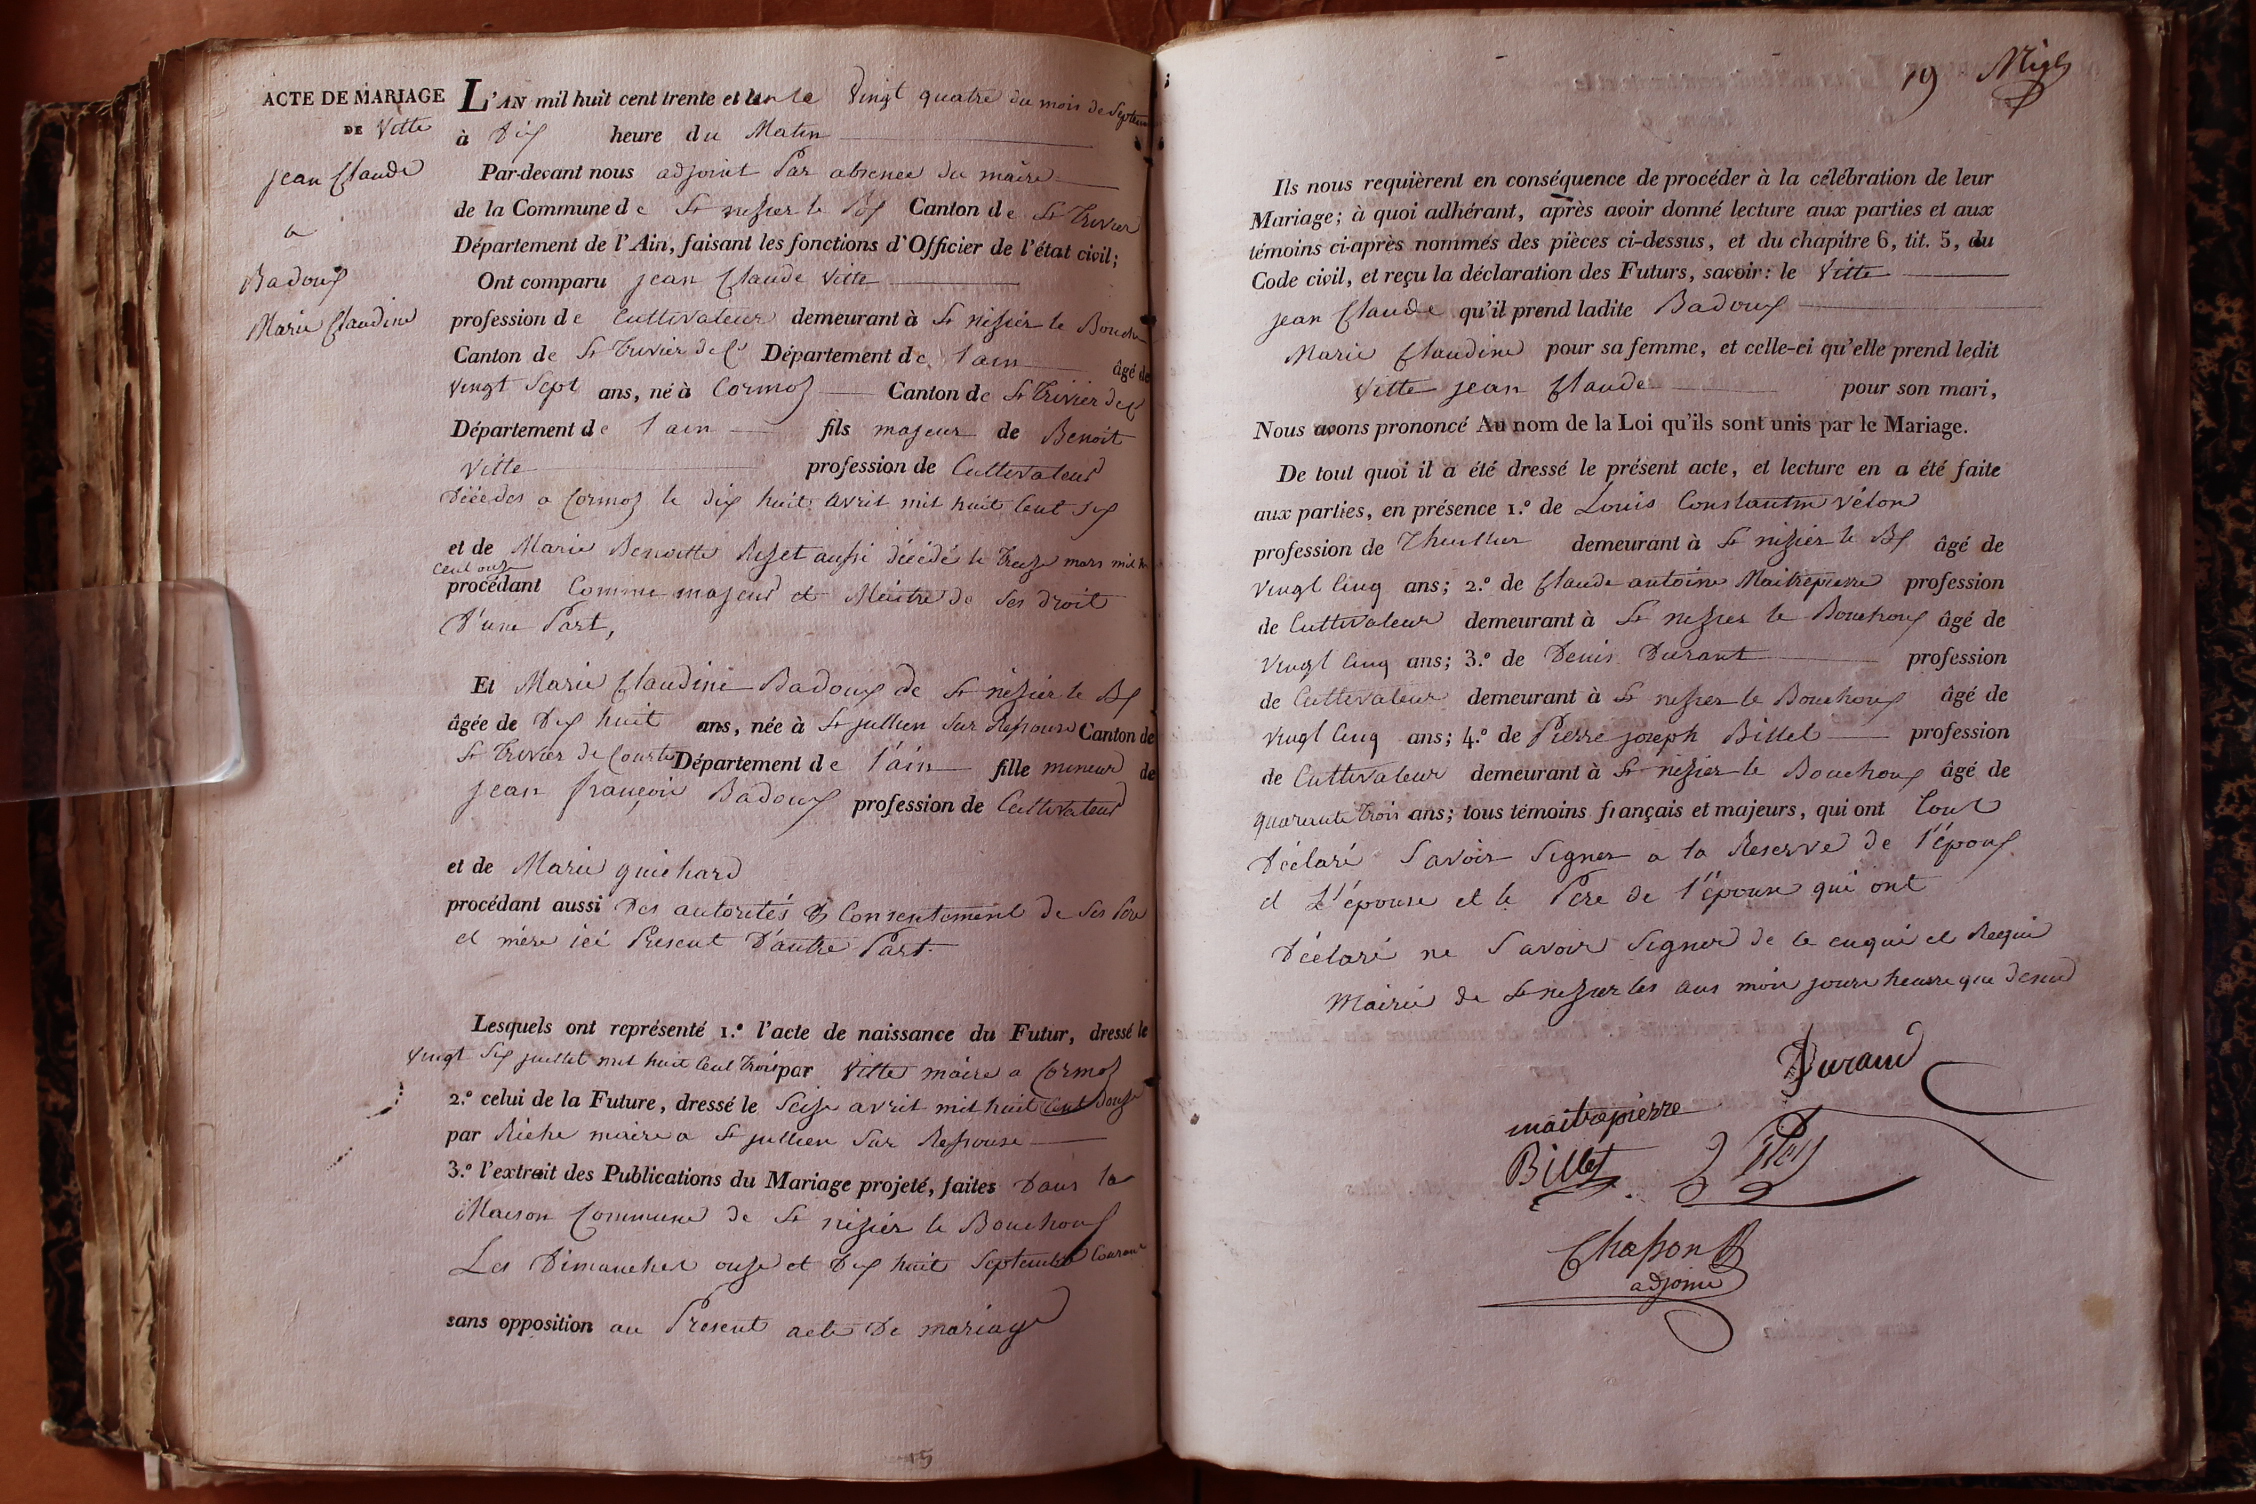 ACTE DE MARIAGE
DE Vitte
jean Claude
a
Badoux
Marie Claudine
L'AN mil huit cent trente et un le Vingt quatre du mois de Septem
à Dix heure du Matin
Par-devant nous adjoint Par absence du maire
de la Commune de St nizier le Box Canton de St Trivier
Département de l'Ain, faisant les fonctions d'Officier de l'état civil;
Ont comparu jean Claude Vitte
profession de Cultivateur demeurant à St nizier le Bouch
Canton de St Trivier de C Département de l'ain âgé de
Vingt Sept ans, né à Cormoz Canton de St Trivier de C
Département de l'ain fils majeur de Benoit
Vitte profession de Cultivateur
Décédes a Cormoz le dix huit avril mil huit Cent Six
et de Marie Benoitte aussi décédé le Treize mars mil h
Cent onze
procédant Comme majeur et Maitre de Ses droit
D'une Part,
Et Marie Claudine Badoux de St nizier le Bx
âgée de Dix huit ans, née à St jullien Sur Ressouse Canton de
St Trivier de Courtes Département de l'ain fille mineur de
jean françois Badoux profession de Cultivateur
et de Marie guichard
procédant aussi Des autorités & Consentement de Ses Pere
et mère ici Present D'autre Part.
Lesquels ont représenté 1.° l'acte de naissance du Futur, dressé le
Vingt Six juillet mil huit Cent Trois par Vitte maire a Cormoz
2.° celui de la Future, dressé le Seize avril mil huit Cent Douze
par Riche maire a St jullien Sur Ressouse
3.° l'extrait des Publications du Mariage projeté, faites Dans la
Maison Commune de St nizier le Bouchoux
Les Dimanches onze et Dix huit Septembre Courant
sans opposition au Present acte De mariage
19
Ils nous requièrent en conséquence de procéder à la célébration de leur
Mariage; à quoi adhérant, après avoir donné lecture aux parties et aux
témoins ci-après nommés des pièces ci-dessus, et du chapitre 6, tit. 5, du
Code civil, et reçu la déclaration des Futurs, savoir: le Vitte
jean Claude qu'il prend ladite Badoux
Marie Claudine pour sa femme, et celle-ci qu'elle prend ledit
Vitte jean Claude pour son mari,
Nous avons prononcé Au nom de la Loi qu'ils sont unis par le Mariage.
De tout quoi il a été dressé le présent acte, et lecture en a été faite
aux parties, en présence 1.° de Louis Constantin Vélon
profession de Thuillier demeurant à St nizier le Bx âgé de
Vingt Cinq ans; 2.° de Claude antoine Maitrepierre profession
de Cultivateur demeurant à St nizier le Bouchoux âgé de
Vingt Cinq ans; 3.° de Denis Durant profession
de Cultivateur demeurant à St nizier le Bouchoux âgé de
Vingt Cinq ans; 4.° de Pierre joseph Billet profession
de Cultivateur demeurant à St nizier le Bouchoux âgé de
quarante trois ans; tous témoins français et majeurs, qui ont tout
Déclaré Savoir Signer a la Reserve de l'époux
et L'épouse et le Pere de l'épouse qui ont
Déclaré ne Savoir Signer de ce enquit et Requi
Mairie de St nizier les ans moi jour heure que dessu
Durand
maitrepierre
Billet
Chasson
adjoint
15